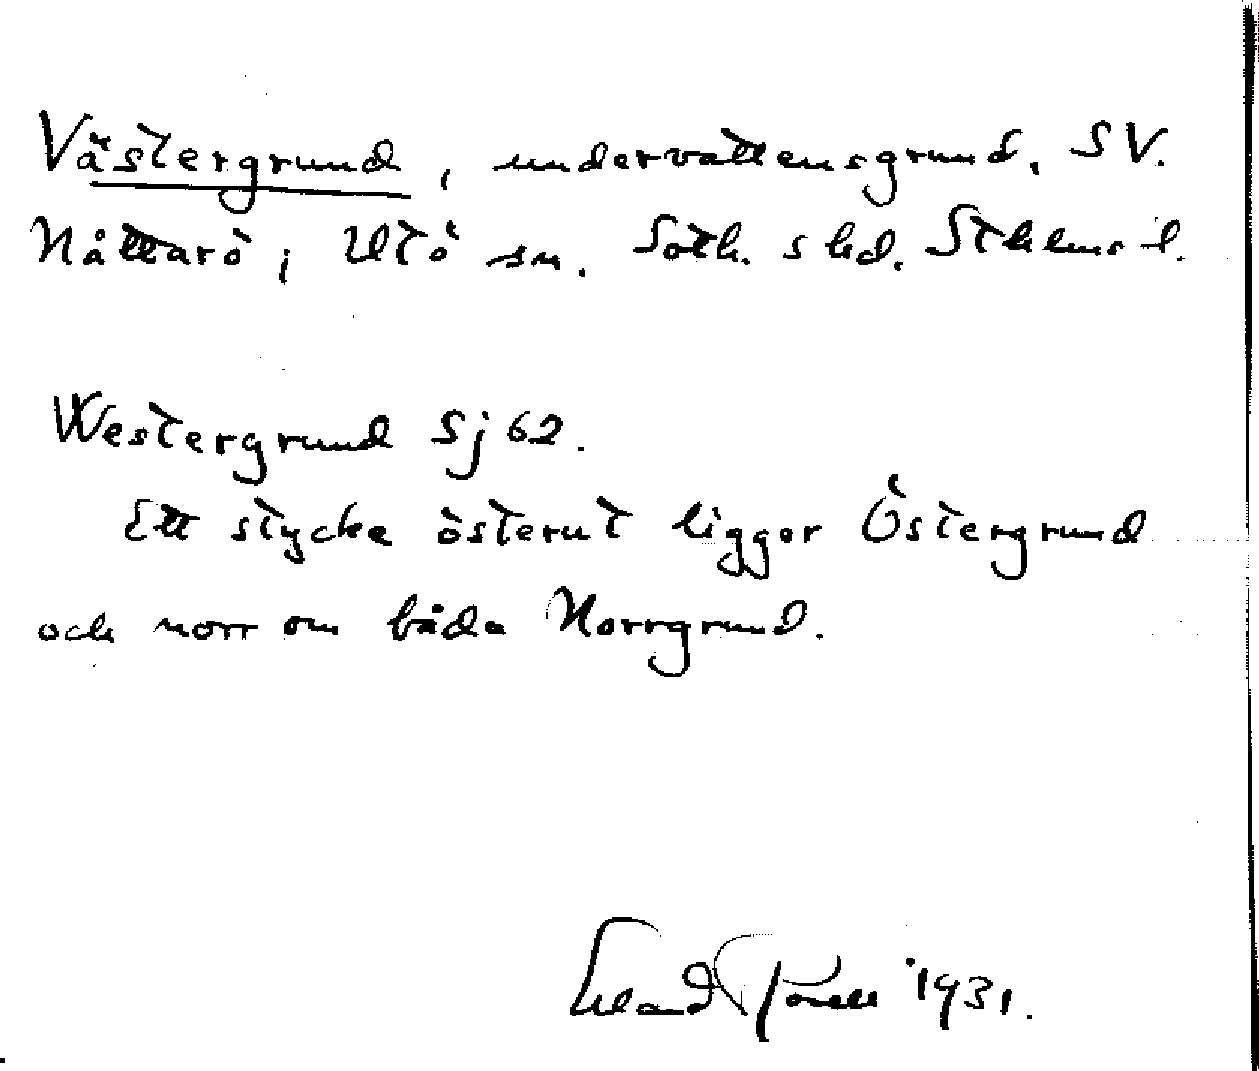 Västergrund, undervattensgrund, SV.
Nåttarö, Utö sn. Soth. skd. Sthlms l.
Westergrund Sj 62.
Ett stycke österut ligger Östergrund
och norr om båda Norrgrund.
1931.